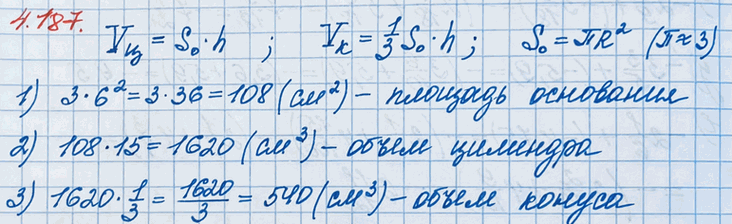 4.187.
Vц = Sₒ·h ; Vк = 1/3 Sₒ·h ; Sₒ = πR² (π≈3)
1) 3·6² = 3·36 = 108 (см²) – площадь основания
2) 108·15 = 1620 (см³) – объем цилиндра
3) 1620·1/3 = 1620/3 = 540 (см³) – объем конуса